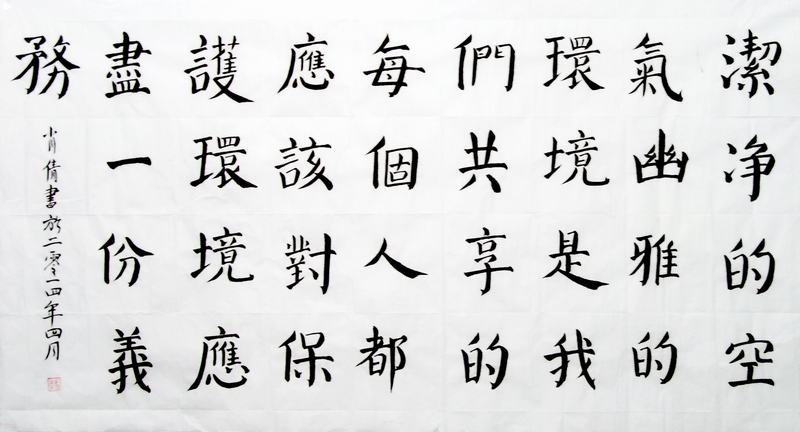 潔净的空
氣幽雅的
環境是我
們共享的
每個人都
應該對保
護環境應
盡一份義
務
肖倩書於二零一四年四月